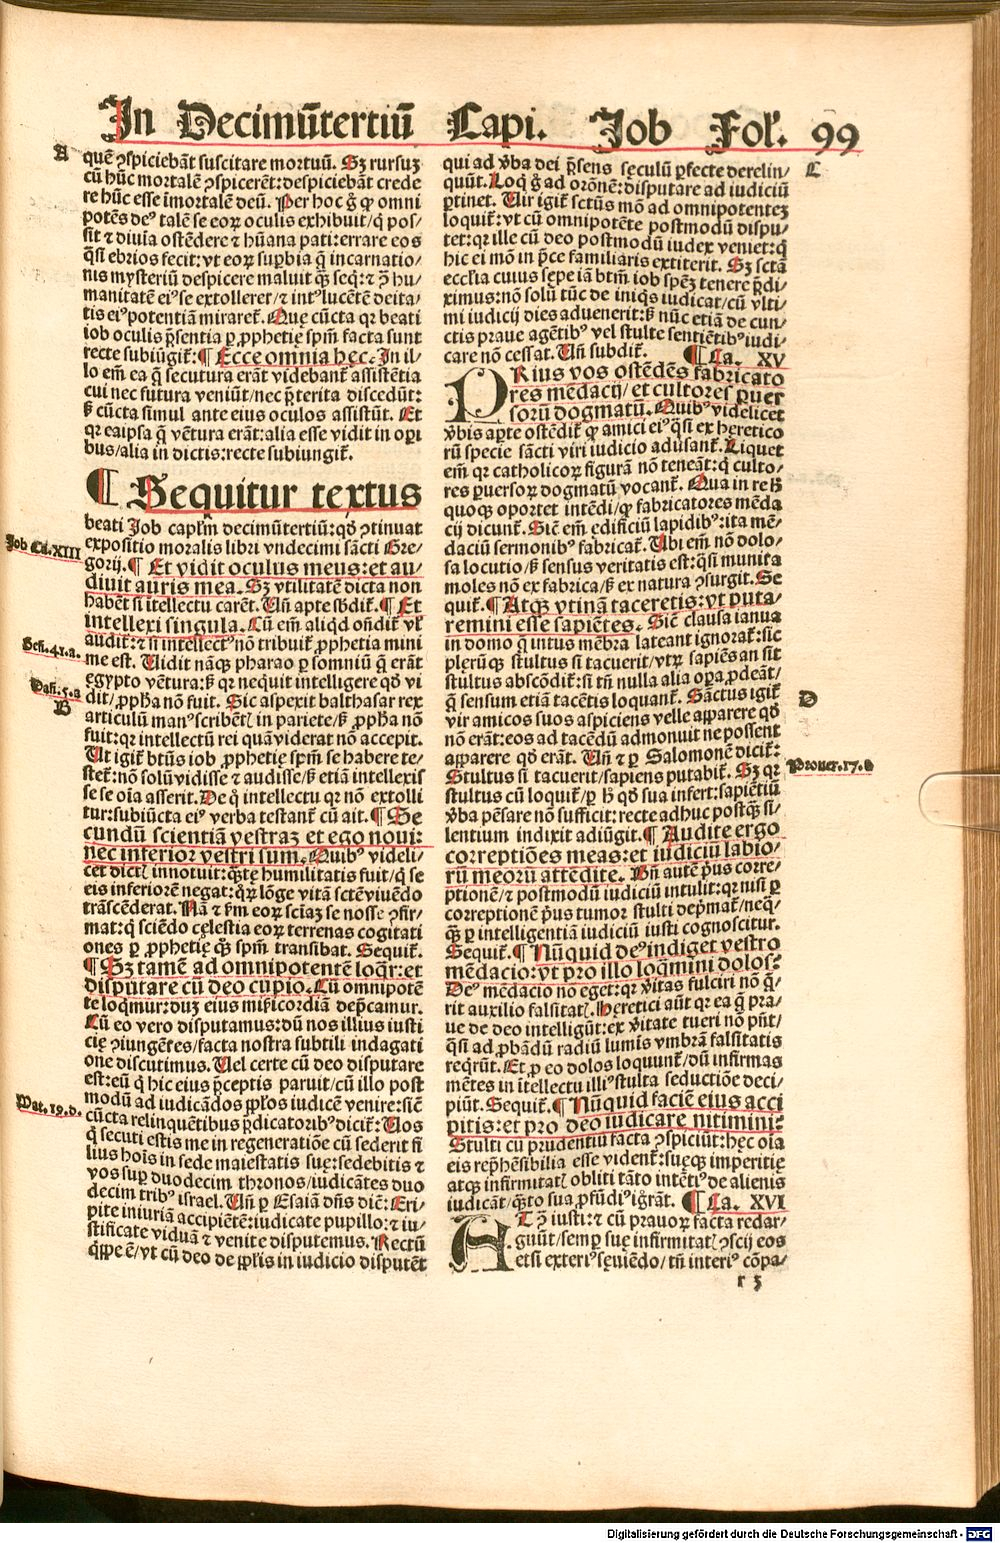 In Decimūtertiū Capi. Job Fol'. 99
A
quē ꝯspiciebāt suscitare mortuū. Sꝫ rursuꝫ
cū hūc mortalē ꝯspicerēt: despiciebāt crede
re hūc esse īmortalē deū. Per hoc g̊ ꝙ omni
potēs deꝰ talē se eoꝝ oculis exhibuit/q̇ pos/
sit ⁊ diuīa ostēdere ⁊ hūana pati: errare eos
q̄si ebrios fecit: vt eoꝝ suꝑbia q̄ incarnatio/
nis mysteriū despicere maluit q̄ꝫ seq̇: ⁊ ꝯ̄ hu/
manitatē eiꝰ se extollerer/⁊ intꝰ lucētē deita/
tis eiꝰ potentiā miraret᷑. Quę cūcta qꝛ beati
iob oculis p̄sentia ꝑ ꝓphetię sp̄m facta sunt
recte subiūgit᷑: ¶ Ecce omnia hęc. In il/
lo em̄ ea q̄ secutura erāt videbant᷑ assistētia
cui nec futura veniūt/nec p̄terita discedūt:
ß cūcta simul ante eius oculos assistūt. Et
qꝛ eaipsa q̄ vētura erāt: alia esse vidit in oꝑi
bus/alia in dictis: recte subiungit᷑.
¶ Sequitur textus
beati Job capl'm decimūtertiū: qd̓ ꝯtinuat
Job Ca. XIII
expositio moralis libri vndecimi sācti Gre/
gorij. ¶ Et vidit oculus meus: et au/
diuit auris mea. Sꝫ vtilitatē dicta non
habēt si ītellectu carēt. Uñ apte sb̓dit᷑. ¶ Et
intellexi singula. Cū em̄ aliqd̓ oñdit᷑ vl'
audit᷑: ⁊ si intellectꝰ nō tribuit᷑ ꝓphetia mini
Geñ. 41. a.
me est. Uidit nāqꝫ pharao ꝑ somniū q̄ erāt
egypto vētura: ß qꝛ neq̇uit intelligere qd̓ vi
Dañ. 5. a
dit/ꝓpħa nō fuit. Sic aspexit balthasar rex
B
articulū manꝰ scribētꝭ in pariete/ß ꝓpħa nō
fuit: qꝛ intellectū rei quā viderat nō accepit.
Ut igit᷑ bt̄us iob ꝓphetię sp̄m se habere te/
stet᷑: nō solū vidisse ⁊ audisse/ß etiā intellexis
se se oīa asserit. De q̇ intellectu qꝛ nō extolli
tur: subiūcta eiꝰ verba testant᷑ cū ait. ¶ Se
cundū scientiā vestraꝫ et ego noui:
nec inferior vestri sum. Quibꝰ videli/
cet dictꝭ innotuit: q̄te humilitatis fuit/q̇ se
eis inferiorē negat: q̇ꝝ lōge vitā sctē viuēdo
trāscēderat. Nā ⁊ ꝟm eoꝝ sciāꝫ se nosse ꝯfir/
mat: q̇ sciēdo cęlestia eoꝝ terrenas cogitati
ones ꝑ ꝓphetię q̄ꝫ sp̄m transibat. Sequit᷑.
¶ Sꝫ tamē ad omnipotentē loq̄r: et
disputare cū deo cupio. Cū omnipotē
te loq̄mur: duꝫ eius miẜicordiā dep̄camur.
Cū eo vero disputamus: dū nos illius iusti
cię ꝯiungētes/facta nostra subtili indagati
one discutimus. Uel certe cū deo disputare
est: eū q̇ hic eius p̄ceptis paruit/cū illo post
Mat. 19. d.
modū ad iudicādos ppl'os iudicē venire: sic̄
cūcta relinquētibus p̄dicatoribꝰ dicit᷑: Uos
q̇ secuti estis me in regeneratiōe cū sederit fi
lius hoīs in sede maiestatis suę: sedebitis ⁊
vos suꝑ duodecim thronos/iudicātes duo
decim tribꝰ israel. Uñ ꝑ Esaiā dn̄s dic̄: Eri/
pite iniuriā accipiētē: iudicate pupillo: ⁊ iu/
stificate viduā ⁊ venite disputemus. Rectū
q̇ppe ē/vt cū deo de ppl'is in iudicio disputēt
C
qui ad v̓ba dei p̄sens sęculū ꝑfecte derelin/
quūt. Loq̇ g̊ ad oronē: disputare ad iudiciū
ꝑtinet. Uir igit᷑ sctūs mō ad omnipotenteꝫ
loquit᷑: vt cū omnipotēte postmodū dispu/
tet: qꝛ ille cū deo postmodū iudex veniet: q̇
hic ei mō in p̄ce familiaris extiterit. Sꝫ sctā
ecc̄lia cuius sepe iā btm̄ iob spēꝫ tenere p̄di/
ximus: nō solū tūc de iniq̇s iudicat/cū vlti/
mi iudicij dies aduenerit: ß nūc etiā de cun/
ctis praue agētibꝰ vel stulte sentiētibꝰ iudi/
care nō cessat. Uñ subdit᷑. ¶ Ca. XV
PRius vos ostēdēs fabricato
res mēdacij/et cultores ꝑuer
soꝝ dogmatū. Quibꝰ videlicet
v̓bis aꝑte ostēdit᷑ ꝙ amici eiꝰ q̄si ex hęretico
rū specie sācti viri iudicio adusant᷑. Liquet
em̄ qꝛ catholicoꝝ figurā nō teneāt: q̇ culto/
res ꝑuersoꝝ dogmatū vocant᷑. Qua in re ħ
quoqꝫ oportet intēdi/ꝙ fabricatores mēda
cij dicunt᷑. Sic̄ em̄ ędificiū lapidibꝰ: ita mē/
daciū sermonibꝰ fabricat᷑. Ubi em̄ nō dolo/
sa locutio/ß sensus veritatis est: q̄si munita
moles nō ex fabrica/ß ex natura ꝯsurgit. Se
quit᷑. ¶ Atqꝫ vtinā taceretis: vt puta/
remini esse sapiētes. Sic̄ clausa ianua
in domo q̄ intus mēbra lateant ignorat᷑: sic
plerūqꝫ stultus si tacuerit/vtꝝ sapiēs an sit
stultus abscōdit᷑: si tn̄ nulla alia oꝑa ꝓdeāt/
q̄ sensum etiā tacētis loquant᷑. Sāctus igit᷑
D
vir amicos suos aspiciens velle apparere qd̓
nō erāt: eos ad tacēdū admonuit ne possent
apparere qd̓ erāt. Uñ ⁊ ꝑ Salomonē dicit᷑:
Prouer. 17. d
Stultus si tacuerit/sapiens putabit᷑. Sꝫ qꝛ
stultus cū loquit᷑/ꝑ ħ qd̓ sua infert: sapiētiū
v̓ba pēsare nō sufficit: recte adhuc postq̄ꝫ si/
lentium indixit adiūgit. ¶ Audite ergo
correptiōes meas: et iudiciū labio/
rū meorū attēdite. Bñ autē p̓us corre/
ptionē/⁊ postmodū iudiciū intulit: qꝛ nisi ꝑ
correptionē p̓us tumor stulti dep̄mat᷑/neq̄/
q̄ꝫ ꝑ intelligentiā iudiciū iusti cognoscitur.
Sequit᷑. ¶ Nūquid deꝰ indiget vestro
mēdacio: vt pro illo loq̄mini dolos?
Deꝰ mēdacio nō eget: qꝛ v̓itas fulciri nō q̄/
rit auxilio falsitatꝭ. Hęretici aūt qꝛ ea q̄ pra/
ue de deo intelligūt: ex v̓itate tueri nō pn̄t/
q̄si ad ꝓbādū radiū lumīs vmbrā falsitatis
req̇rūt. Et ꝑ eo dolos loquunt᷑/dū infirmas
mētes in ītellectu illiꝰ stulta seductiōe deci/
piūt. Sequit᷑. ¶ Nūquid faciē eius acci
pitis: et pro deo iudicare nitimini:
Stulti cū prudentiū facta ꝯspiciūt: hęc oīa
eis rep̄hēsibilia esse vident᷑: suęqꝫ imperitię
atqꝫ infirmitatꝭ obliti tāto intētiꝰ de alienis
iudicāt/q̄to sua ꝓfūdiꝰ igrāt. ¶ Ca. XVI
AT ꝯ̄ iusti: ⁊ cū prauoꝝ facta redar/
guūt/semꝑ suę infirmitatꝭ ꝯscij eos
etsi exteriꝰ sęuiēdo/tn̄ interiꝰ cōpa/
r 3
Digitalisierung gefördert durch die Deutsche Forschungsgemeinschaft - DFG